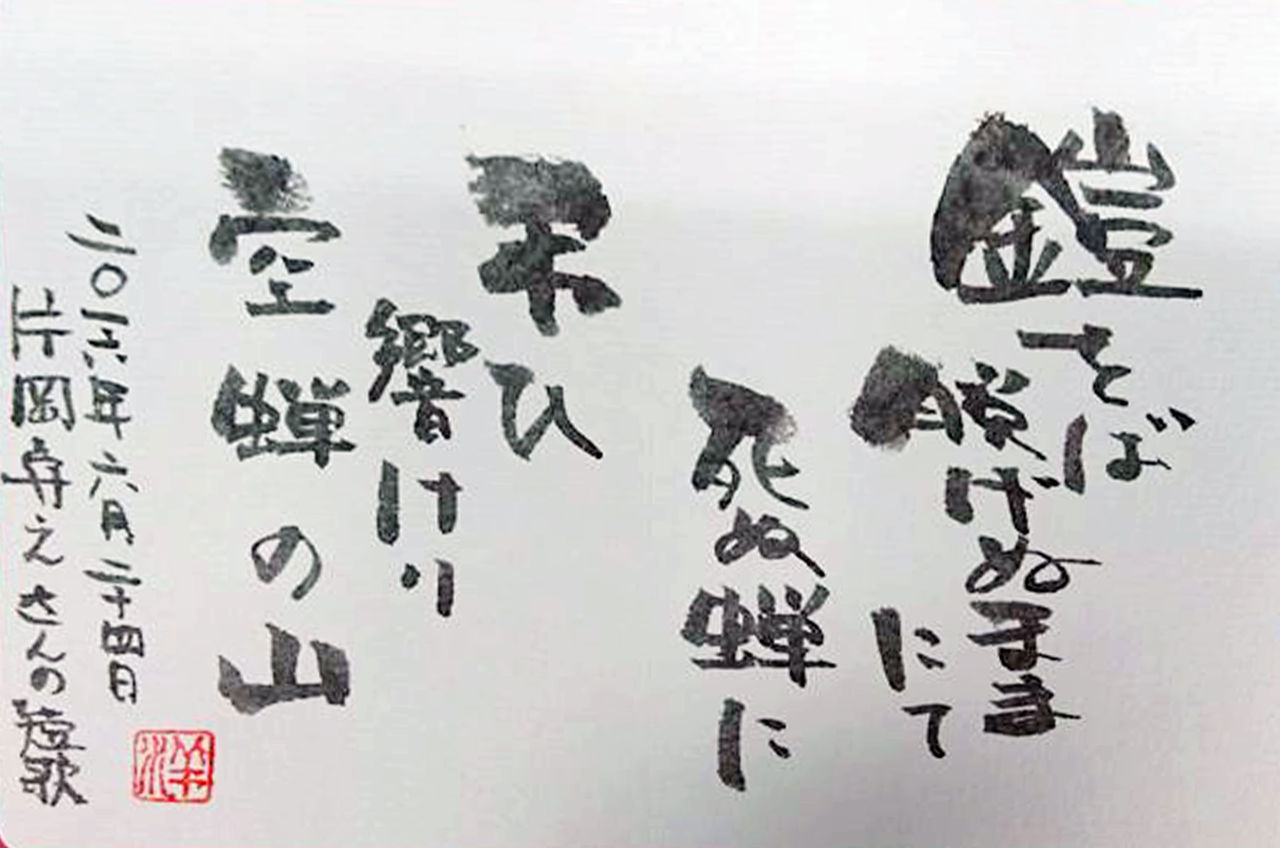 鎧をば
脱げぬまま
にて
死ぬ蝉に
弔ひ
響けり
空蝉の山
二〇一六年六月二十四日
片岡舟えさんの短歌